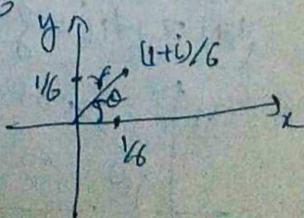 y
(1+i)/6
1/6
r
θ
x
1/6